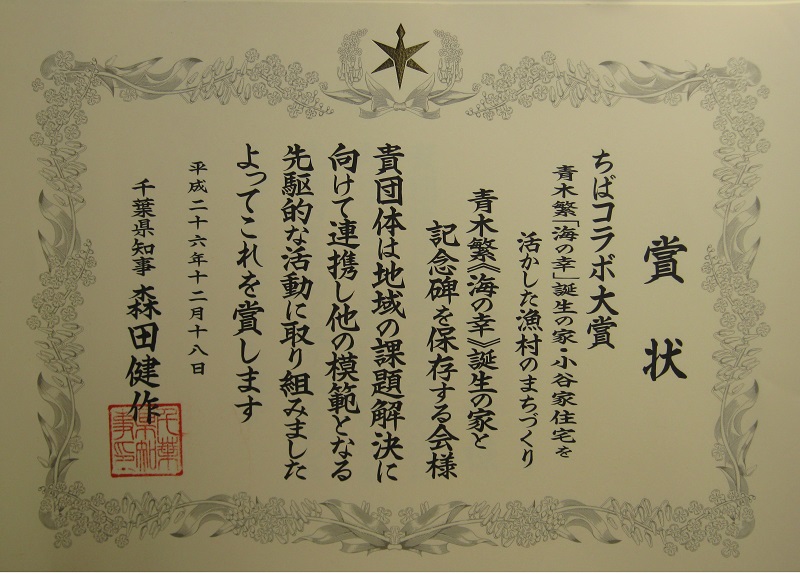 賞状
ちばコラボ大賞
青木繁「海の幸」誕生の家・小谷家住宅を
活かした漁村のまちづくり
青木繁《海の幸》誕生の家と
記念碑を保存する会様
貴団体は地域の課題解決に
向けて連携し他の模範となる
先駆的な活動に取り組みました
よってこれを賞します
平成二十六年十二月十八日
千葉県知事 森田健作
千葉県知事印